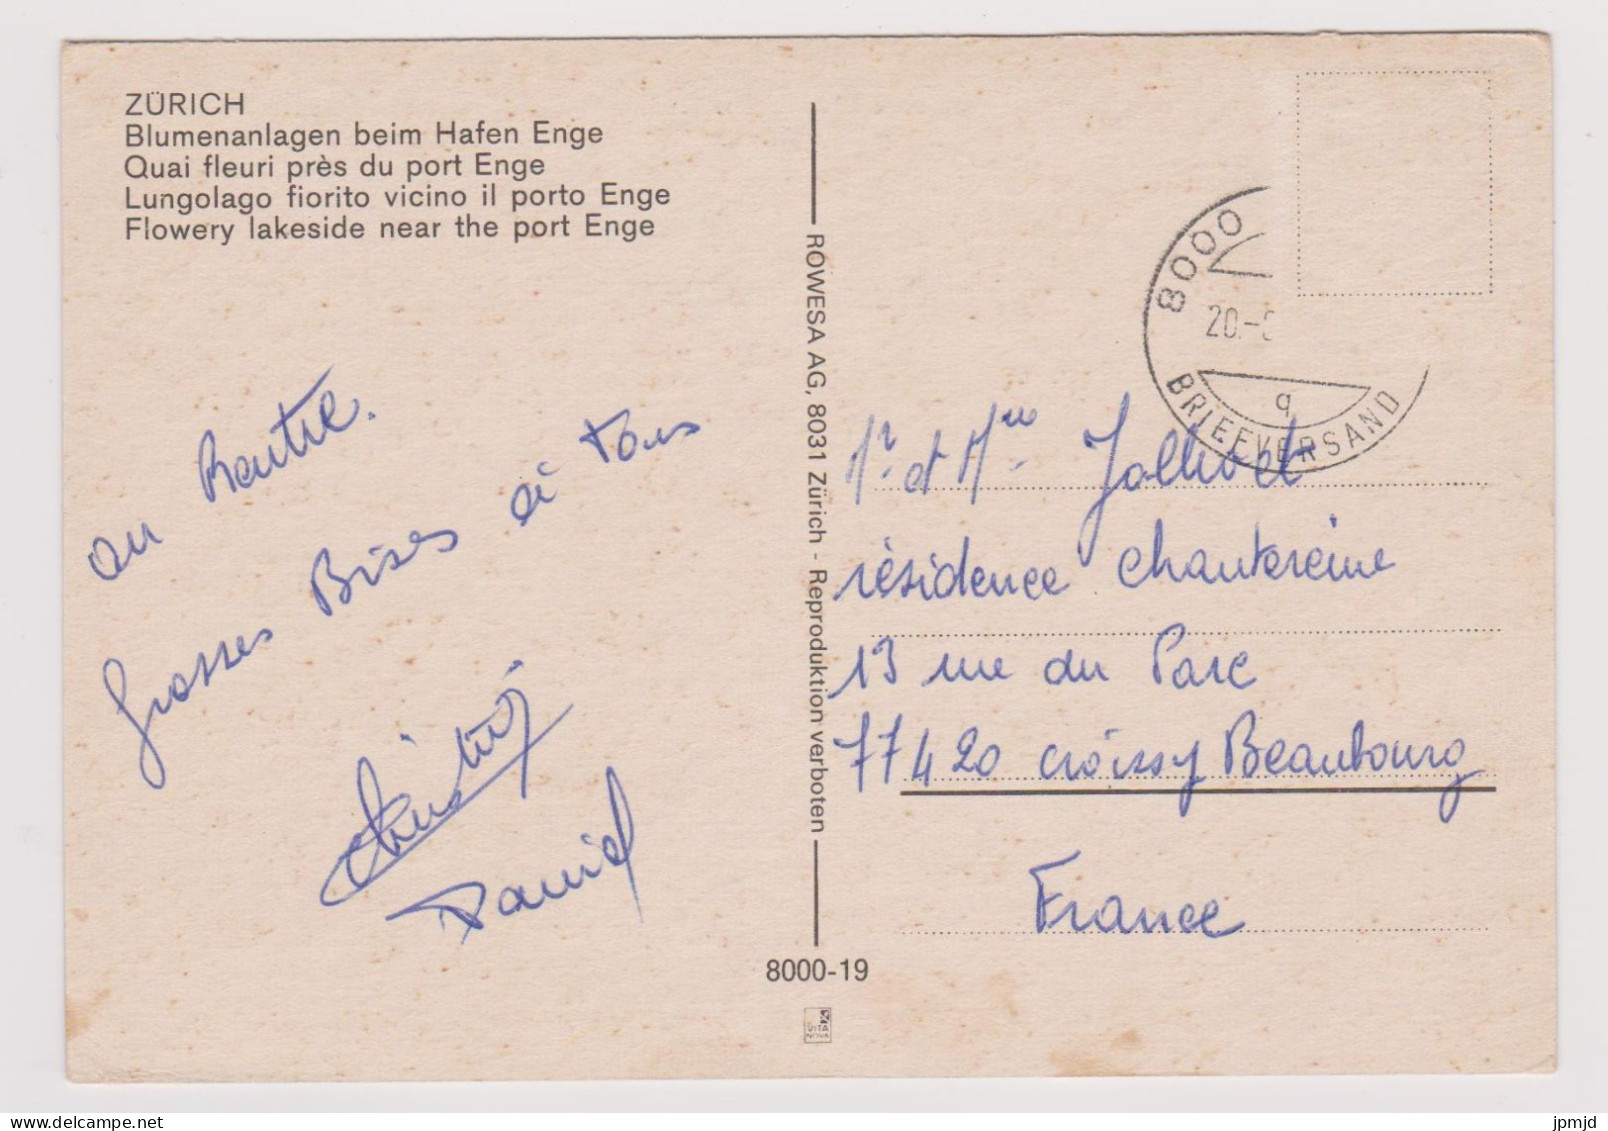 ZÜRICH
Blumenanlagen beim Hafen Enge
Quai fleuri près du port Enge
Lungolago fiorito vicino il porto Enge
Flowery lakeside near the port Enge
grosses Bises à tous
Daniel
ROWESA AG, 8031 Zürich - Reproduktion verboten
8000-19
VITA
NOVA
8000
20.-
q
BRIEFVERSAND
Mr. et Mme.
résidence Chantereine
13 rue du Parc
77420 Croissy Beaubourg
France
delcampe.net
jpmjd